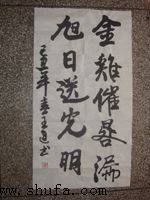 金雞催晷漏
旭日送光明
己丑年春王书
www.shufa.com